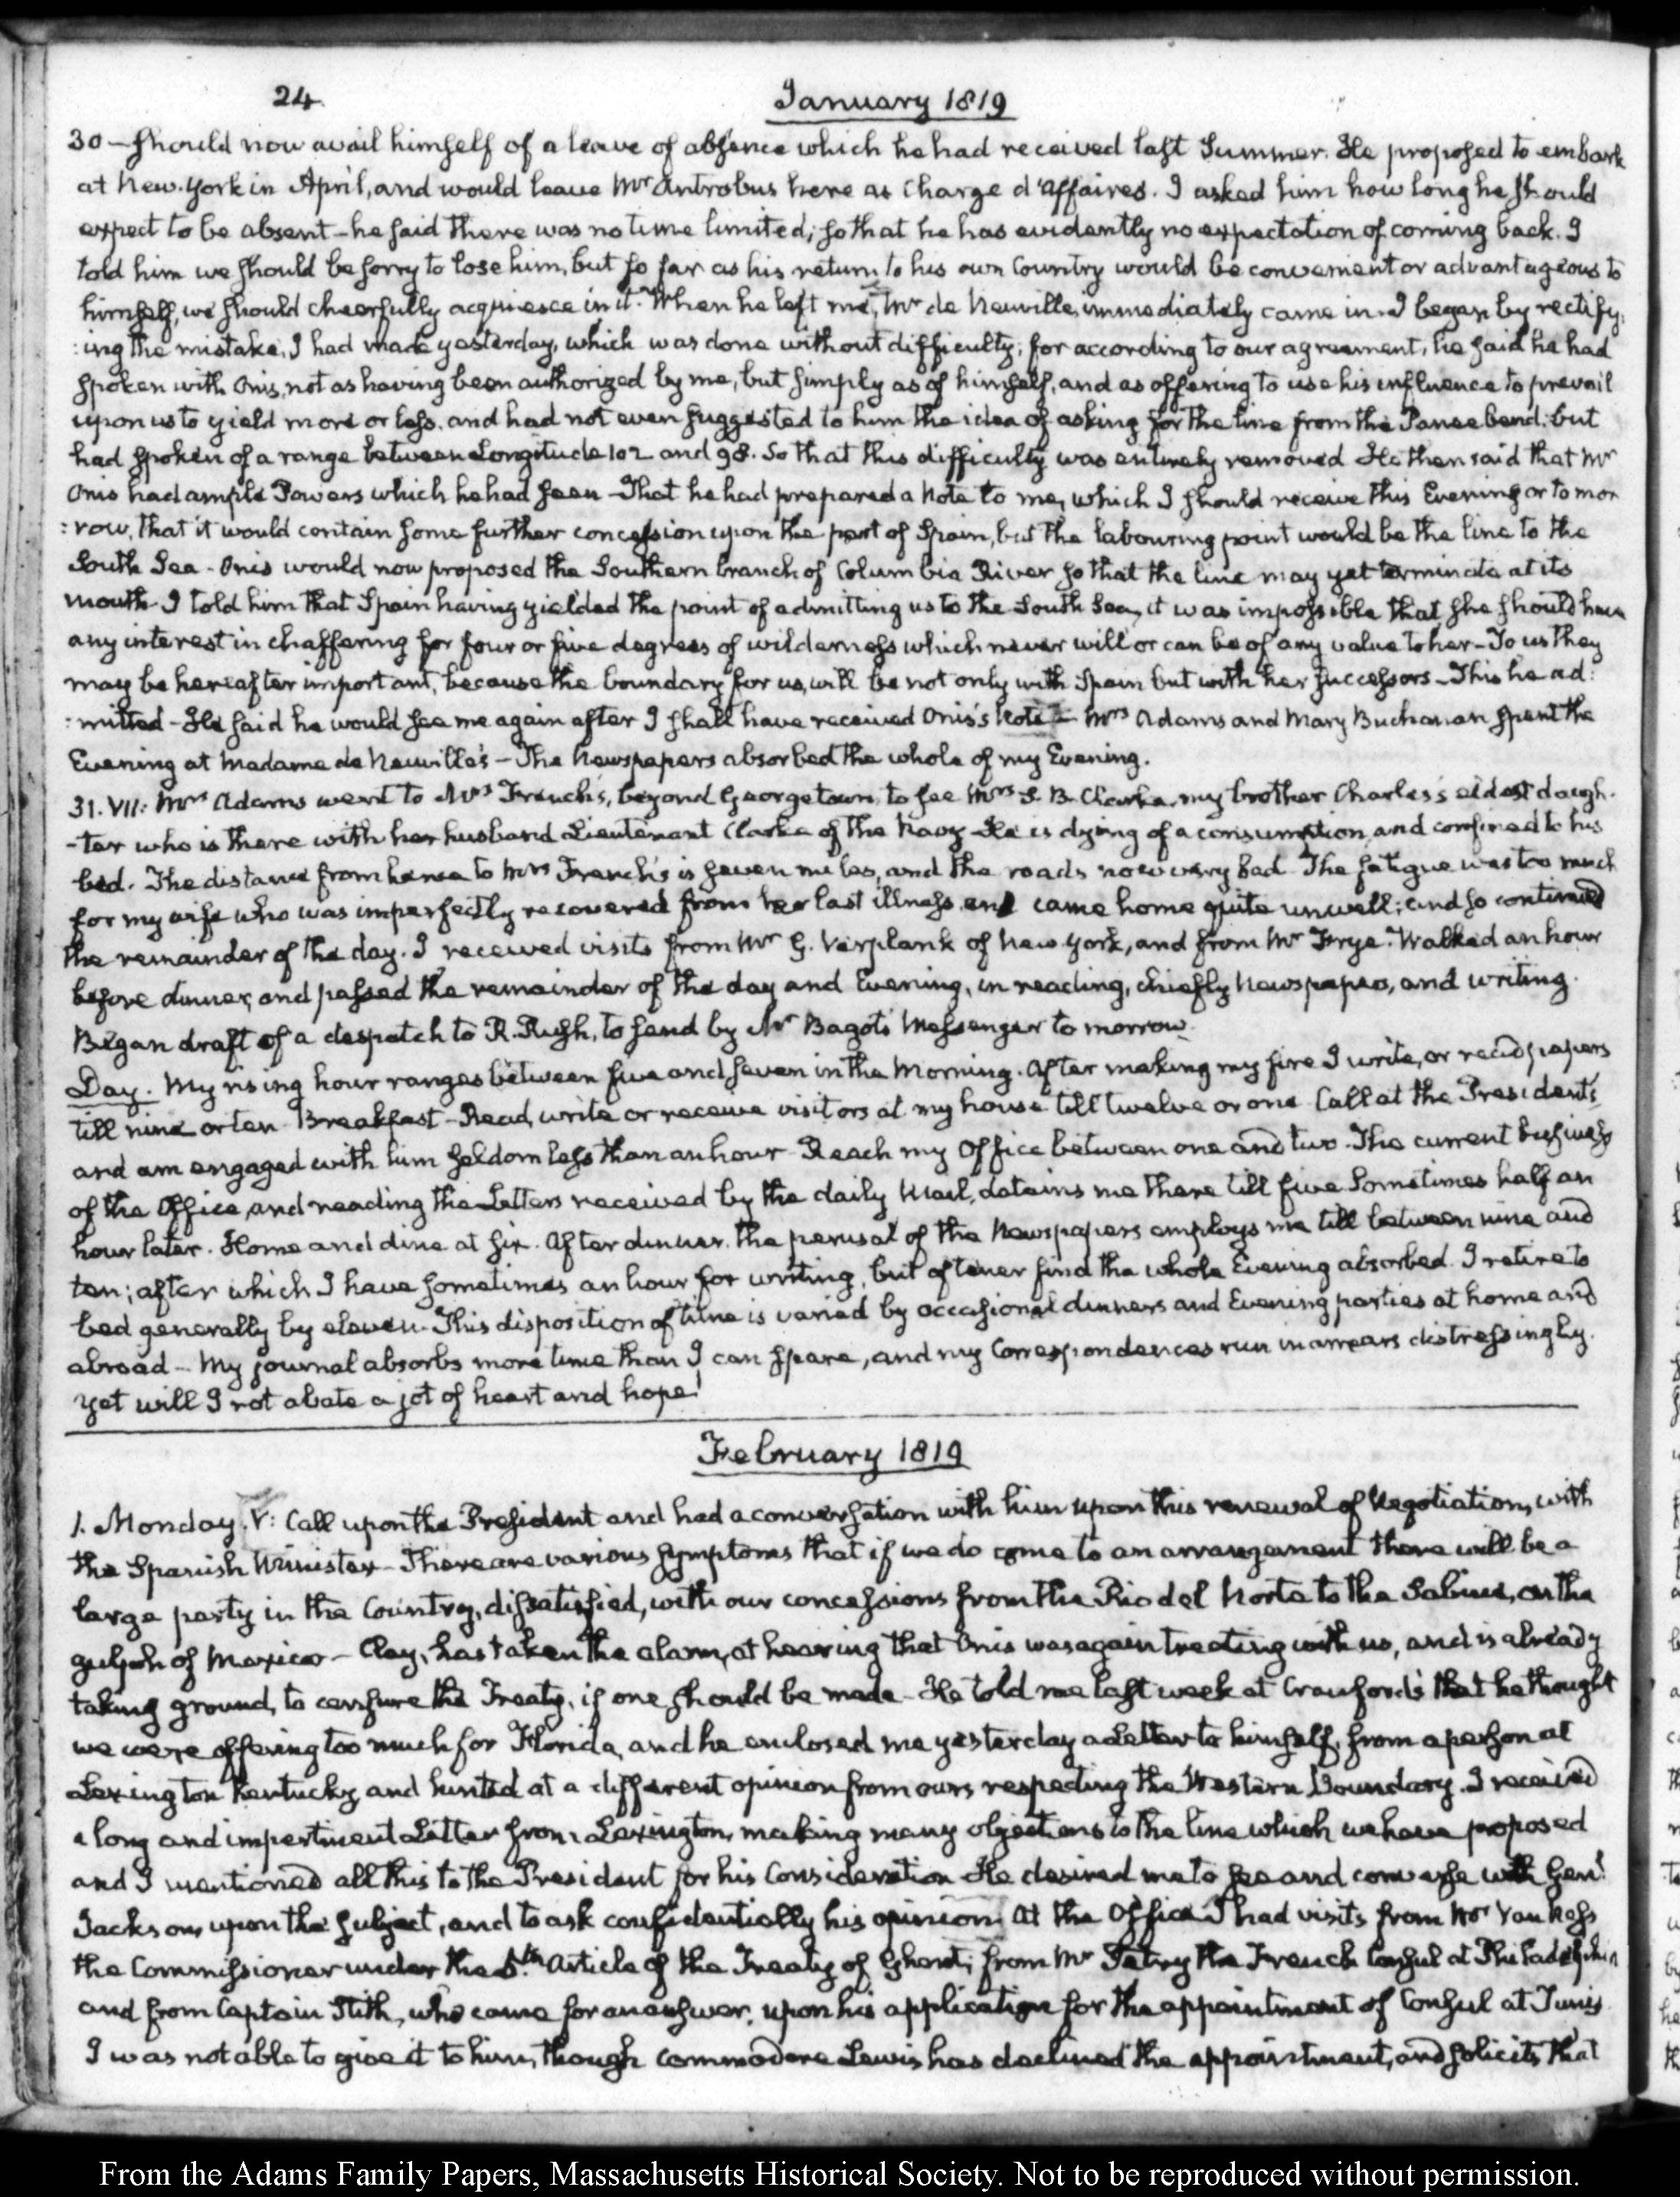 24
January 1819
30 - should now avail himself of a leave of absence which he had received last Summer. He proposed to embark
at New-York in April, and would leave Mr Antrobus here as Charge d'Affaires. I asked him how long he should
expect to be absent - he said there was no time limited; so that he has evidently no expectation of coming back. I
told him we should be sorry to lose him, but so far as his return to his own Country would be convenient or advantageous to
himself, we should cheerfully acquiesce in it. When he left me, Mr de Neuville, immediately came in. I began by rectify:
:ing the mistake, I had made yesterday, which was done without difficulty; for according to our agreement, he said he had
spoken with Onis, not as having been authorized by me, but simply as of himself, and as offering to use his influence to prevail
upon us to yield more or less. and had not even suggested to him the idea of asking for the line from the Panse bend: but
had spoken of a range between Longitude 102 and 98. So that this difficulty was entirely removed He then said that Mr
Onis had ample Powers which he had seen - That he had prepared a Note to me, which I should receive this Evening or to mor
:row, that it would contain some further concession upon the part of Spain, but the labouring point would be the line to the
South Sea - Onis would now proposed the Southern branch of Columbia River so that the line may yet terminate at its
mouth - I told him that Spain having yielded the point of admitting us to the South Sea, it was impossible that she should have
any interest in chaffering for four or five degrees of wilderness which never will or can be of any value to her - To us they
may be hereafter important, because the boundary for us, will be not only with Spain but with her successors - This he ad:
:mitted - He said he would see me again after I shall have received Onis's Note - Mrs Adams and Mary Buchanan spent the
Evening at Madame de Neuville's - The Newspapers absorbed the whole of my Evening.
31. VII: Mrs Adams went to Mrs French's, beyond Georgetown, to see Mrs S. B. Clarke, my brother Charles's eldest daugh-
-ter who is there with her husband Lieutenant Clarke of the Navy - He is dying of a consumption, and confined to his
bed. The distance from hence to Mrs French's is seven miles, and the roads now very bad The fatigue was too much
for my wife who was imperfectly recovered from her last illness and came home quite unwell; and so continued
the remainder of the day. I received visits from Mr G. Verplank of New York, and from Mr Frye. Walked an hour
before dinner, and passed the remainder of the day and Evening, in reading, chiefly Newspapers, and writing.
Began draft of a despatch to R. Rush, to send by Mr Bagot's Messenger to morrow.
Day. My rising hour ranges between five and seven in the Morning. After making my fire I write, or read papers
till nine or ten - Breakfast - Read, write or receive visitors at my house till twelve or one - Call at the President's
and am engaged with him seldom less than an hour - Reach my Office between one and two - The current business
of the Office, and reading the Letters received by the daily Mail, detains me there till five Sometimes half an
hour later. Home and dine at six. After dinner, the perusal of the Newspapers employs me till between nine and
ten; after which I have sometimes an hour for writing, but oftener find the whole Evening absorbed. I retire to
bed generally by eleven. This disposition of time is varied by occasional dinners and Evening parties at home and
abroad - My journal absorbs more time than I can spare, and my Correspondences run in arrears distressingly.
yet will I not abate a jot of heart and hope!
February 1819
1. Monday. V: Call upon the President and had a conversation with him upon this renewal of Negotiation, with
the Spanish Minister - There are various symptoms that if we do come to an arrangement there will be a
large party in the Country, dissatisfied, with our concessions from the Rio del Norte to the Sabine, on the
gulph of Mexico - Clay, has taken the alarm, at hearing that Onis was again treating with us, and is already
taking ground, to censure the Treaty, if one should be made - He told me last week at Crawford's that he thought
we were offering too much for Florida, and he enclosed me yesterday a Letter to himself, from a person at
Lexington Kentucky, and hinted at a different opinion from ours respecting the Western Boundary. I received
a long and impertinent Letter from Lexington, making many objections to the line which we have proposed
and I mentioned all this to the President for his Consideration He desired me to see and converse with Genl
Jackson, upon the subject, and to ask confidentially his opinion. At the Office I had visits from Mr Van Ness
the Commissioner under the 5th Article of the Treaty of Ghent; from Mr Petry the French Consul at Philadelphia
and from Captain Stith, who came for an answer, upon his application for the appointment of Consul at Tunis.
I was not able to give it to him, though Commodore Lewis has declined the appointment, and solicits that
From the Adams Family Papers, Massachusetts Historical Society. Not to be reproduced without permission.